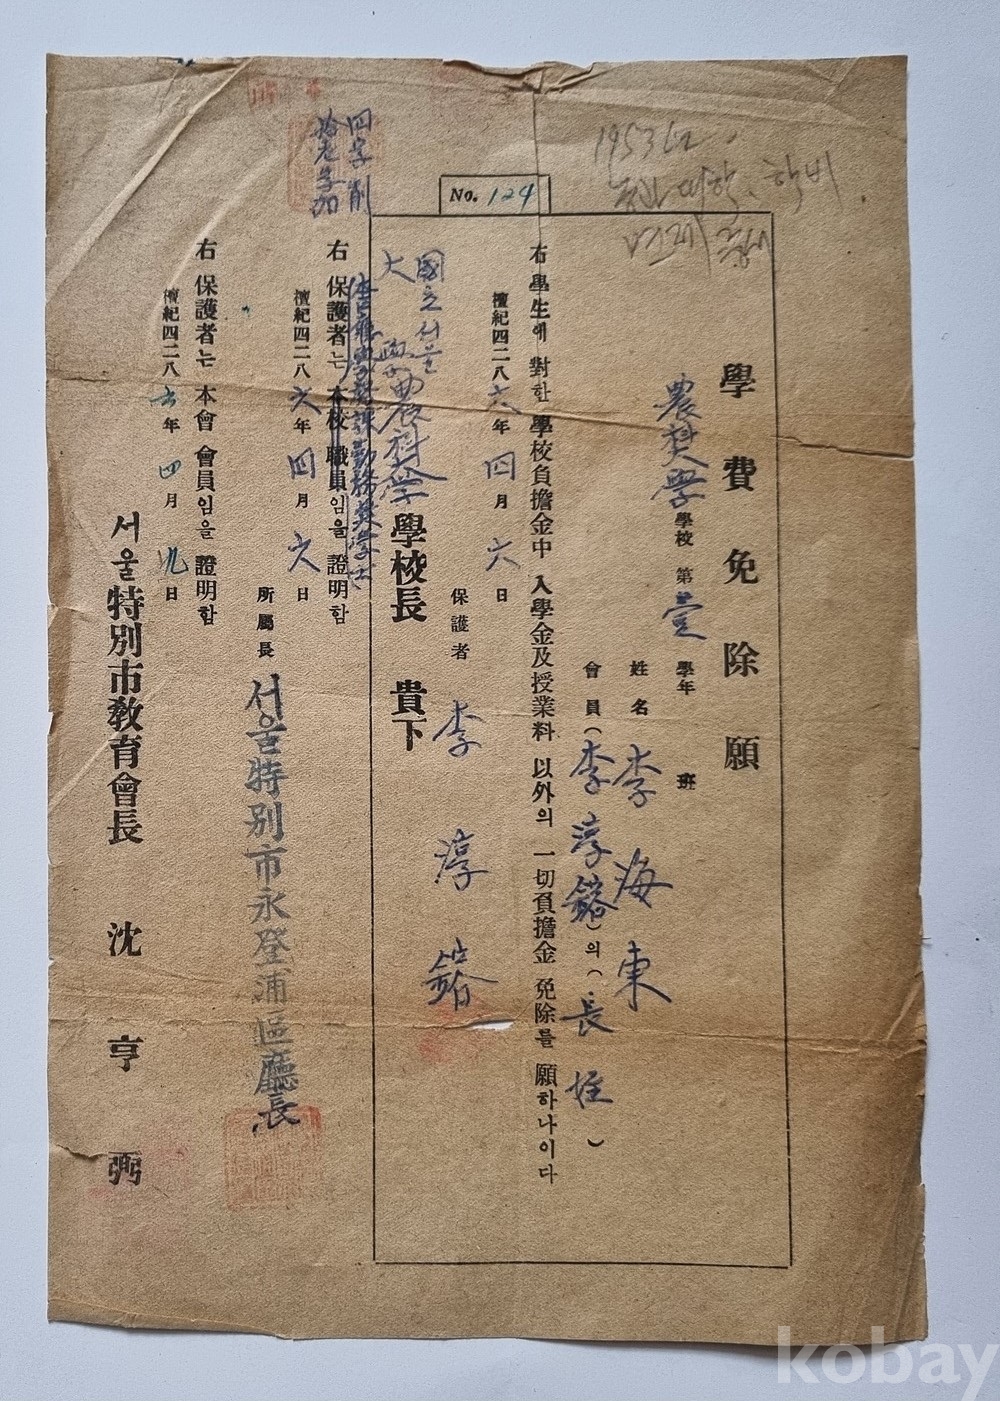 1953년
농과대학 학비
면제원
No. 124
學費免除願
農科大學 學校 第 壹 學年 班
姓名 李海東
會員(李淳鎔)의(長姪)
右 學生에 對한 學校負擔金中 入學金及授業料 以外의 一切負擔金 免除를 願하나이다
檀紀四二八六年 四月 六日
保護者 李淳鎔
國立서울
大學校農科大學 學校長 貴下
四字削
拾老字加
右 保護者는 本校 職員임을 證明함
檀紀四二八六年 四月 六日
所屬長 서울特別市永登浦區廳長
右 保護者는 本會 會員임을 證明함
檀紀四二八六年 四月 九日
서울特別市敎育會長 沈亨弼
kobay